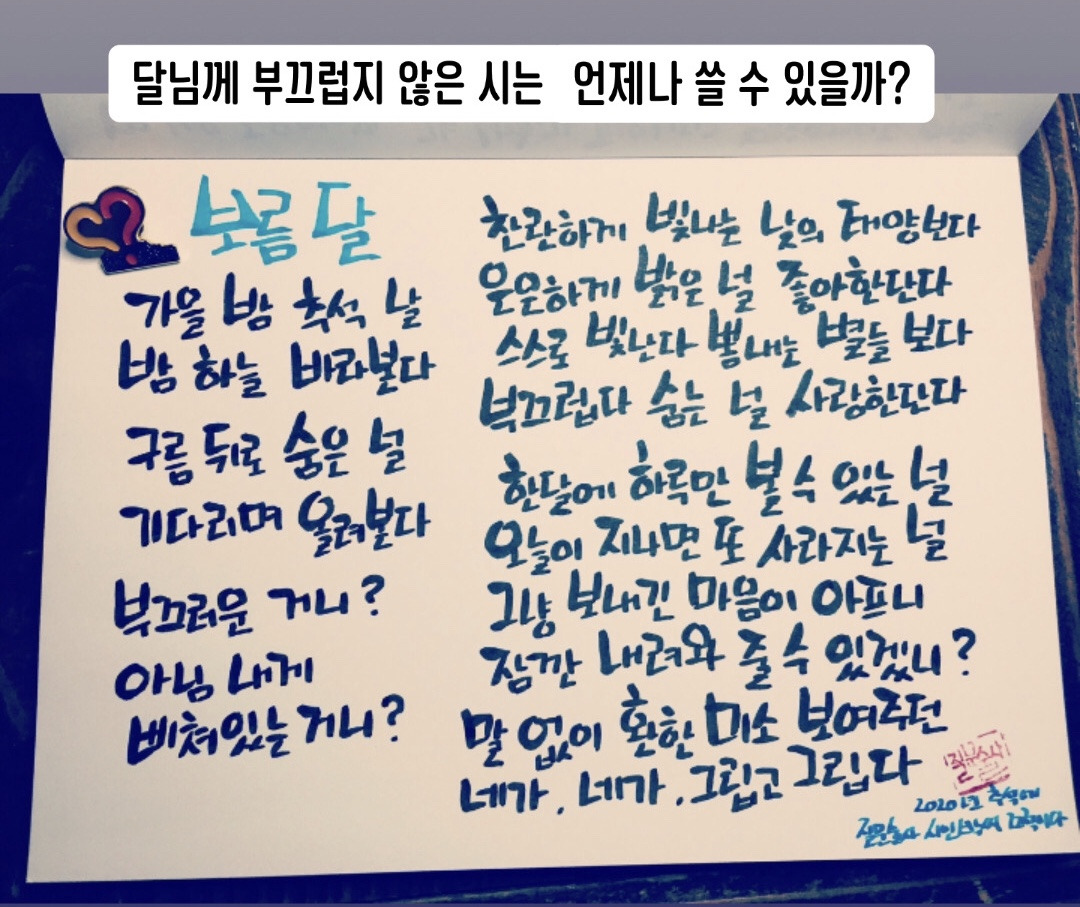 달님께 부끄럽지 않은 시는 언제나 쓸 수 있을까?
보름달
가을 밤 추석 날
밤 하늘 바라본다
구름 뒤로 숨은 널
기다리며 올려본다
부끄러운 거니?
아님 내게
삐쳐있는 거니?
찬란하게 빛나는 낮의 태양보다
은은하게 밝은 널 좋아한단다
스스로 빛난다 뽐내는 별들 보다
부끄럽다 숨는 널 사랑한단다
한달에 하루만 볼 수 있는 널
오늘이 지나면 또 사라지는 널
그냥 보내긴 마음이 아프니
잠깐 내려와 줄 수 있겠니?
말 없이 환한 미소 보여주던
네가, 네가, 그립고 그립다
질문술사
2020년 추석에
질문술사 시인박씨